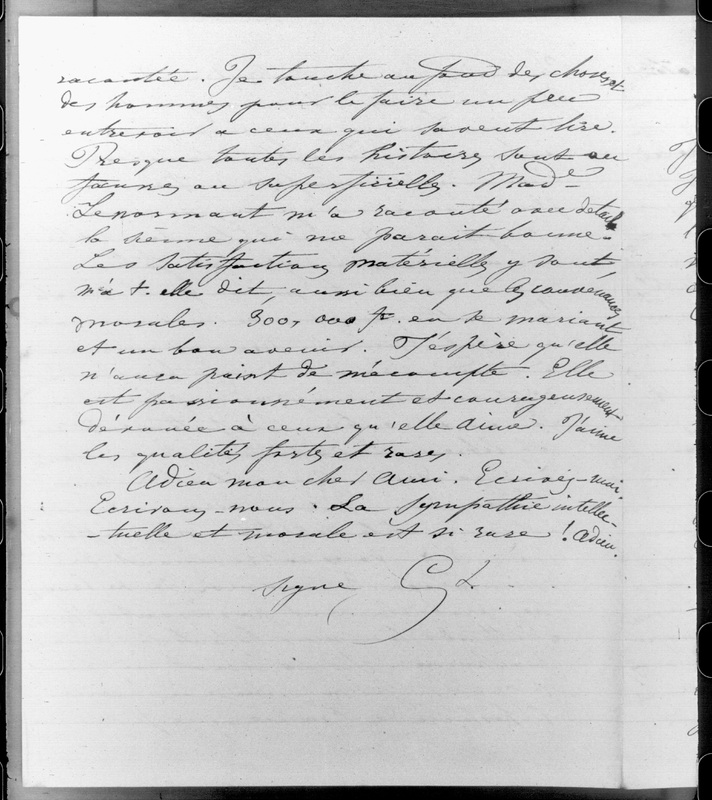 racontée. Je touche au fond des choses et
des hommes pour le faire un peu
entrevoir à ceux qui savent lire.
Presque toutes les histoires sont ou
fausses ou superficielles. Made
Lenormant m'a raconté avec détail
la sienne qui me parait bonne.
Les satisfactions matérielles y sont,
m'a t. elle dit, aussi bien que les convenances
morales. 300,000 fr. en se mariant
et un bon avenir. J'éspère qu'elle
n'aura point de mécompte. Elle
est passionnément et courageusement
dévouée à ceux qu'elle aime. J'aime
les qualités fortes et rares.
Adieu mon cher ami. Ecrivez-moi.
Ecrivons-nous. La sympathie intellec-
-tuelle et morale est si rare ! Adieu.
signé